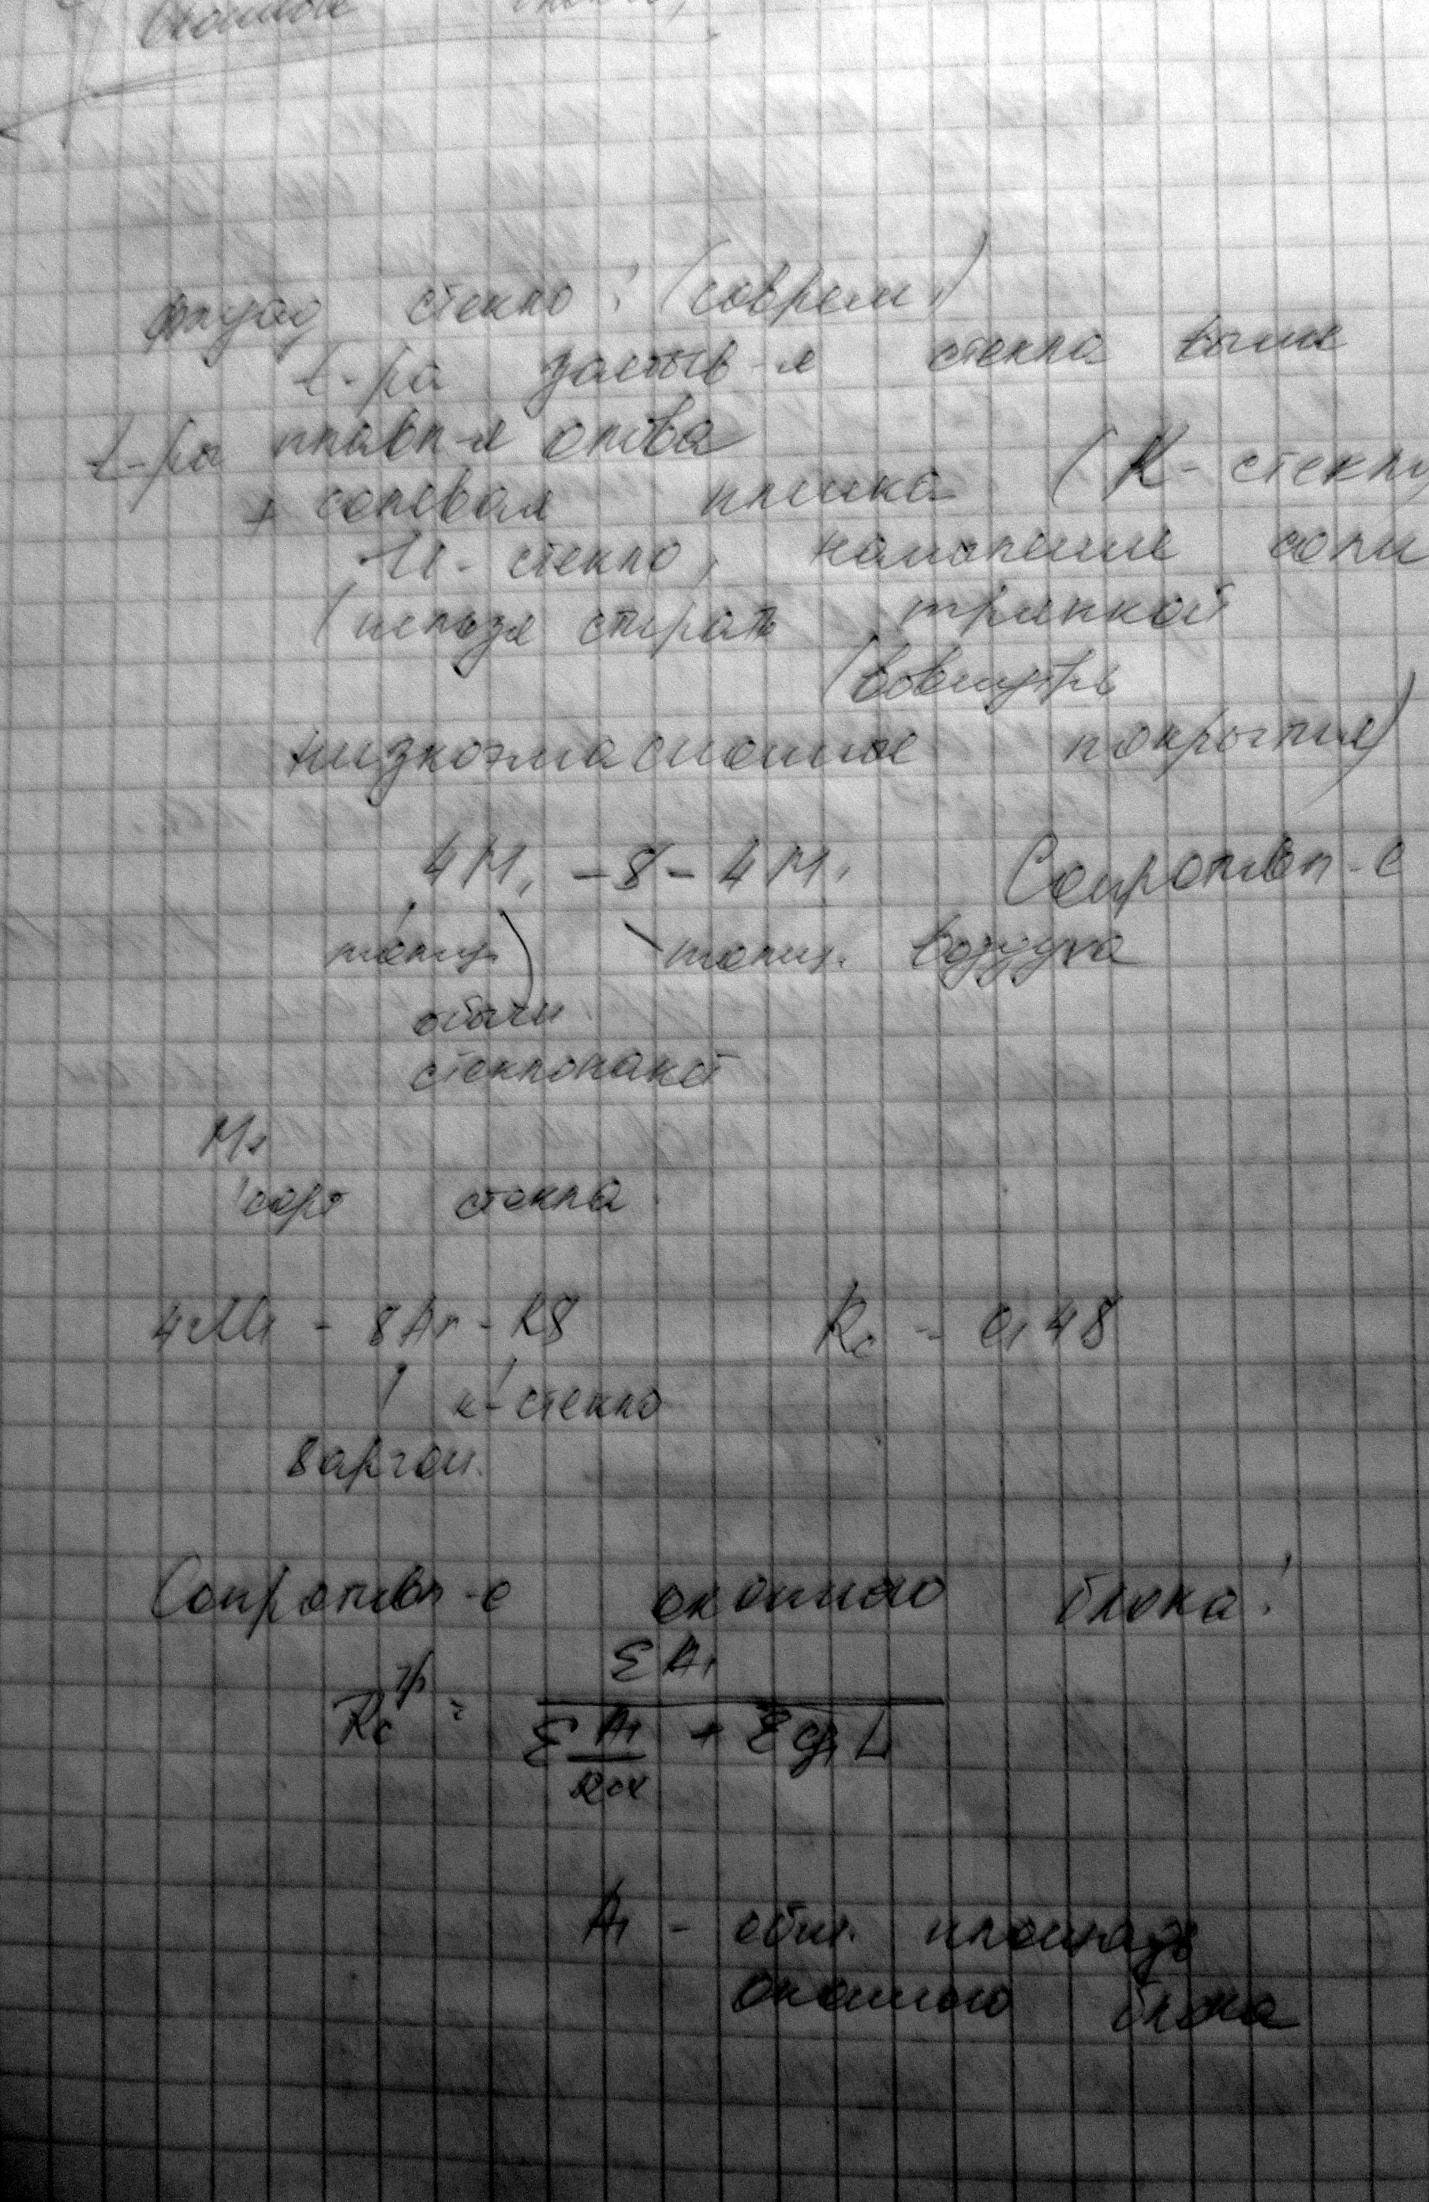 стекло: (соврем.)
t-ра застыв-я стекла выше
t-ры плавл-я олова
+ солевая пленка (К-стекло
И-стекло, напыление соли
(нельзя стирать тряпкой
(вовнутрь
низкоэмассионное покрытие)
4М₁ -8- 4М₁ Сопротивл-е
толщ. толщ. воздуха
обычн.
стеклопакет
М₁
сорт стекла
4М₁ - 8Ar - К8 Rс = 0,48
к-стекло
8 аргон.
Сопротивл-е оконного блока:
Rс^пр = ΣA₁ / (Σ A₁/Rсх + Σφ₁L)
A₁ - общ. площадь
оконного блока